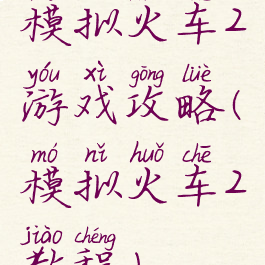 模拟火车2
yóu xì gōng lüè
游戏攻略(
mó nǐ huǒ chē
模拟火车2
jiào chéng
教程)